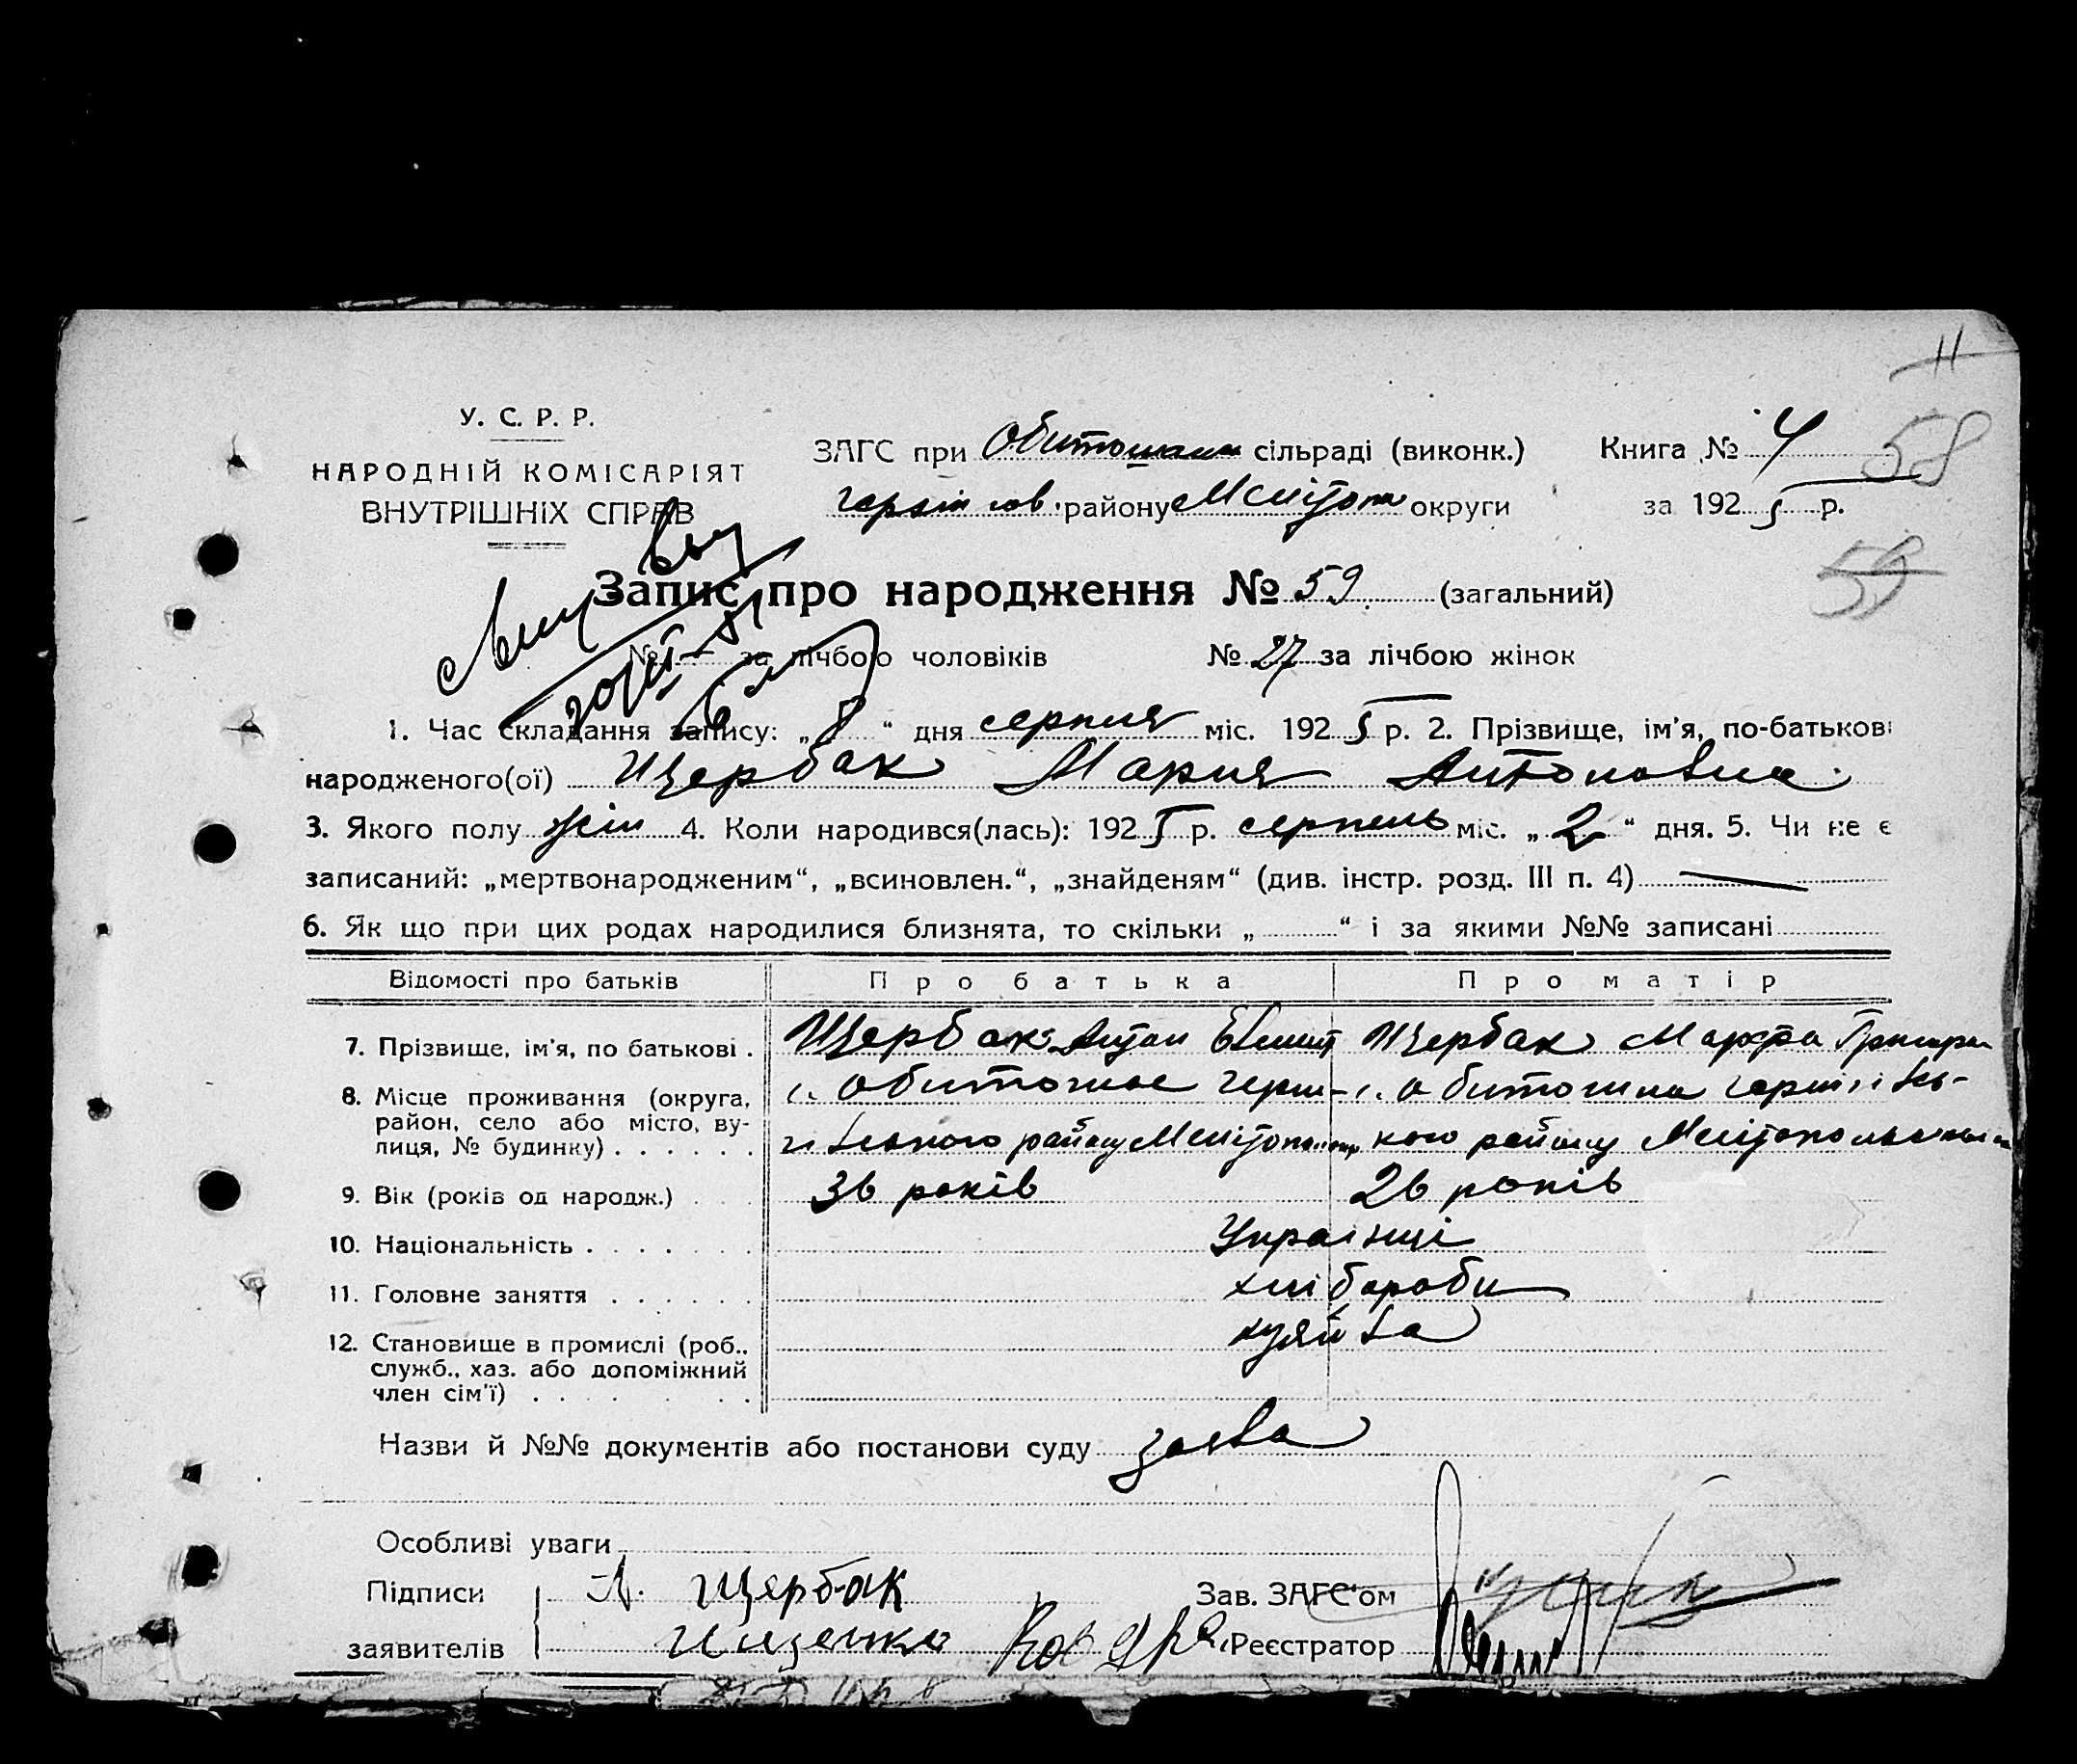 11
У. С. Р. Р.
НАРОДНІЙ КОМІСАРІЯТ
ВНУТРІШНІХ СПРАВ
ЗАГС при сільраді (виконк.)
району Мелітоп округи
Книга № 4
58
за 1925 р.
59
Запис про народження № 59 (загальний)
№ — за лічбою чоловіків № 27 за лічбою жінок
1. Час складання запису: „ 8 “ дня серпня міс. 1925 р. 2. Прізвище, ім'я, по-батькові
народженого(ої) Щербак Мария Антоновна
3. Якого полу жін 4. Коли народився(лась): 1925 р. серпень міс. „ 2 “ дня. 5. Чи не є
записаний: „мертвонародженим“, „всиновлен.“, „знайденям“ (див. інстр. розд. III п. 4) —
6. Як що при цих родах народилися близнята, то скільки „ “ і за якими №№ записані
Відомості про батьків Про батька Про матір
7. Прізвище, ім'я, по батькові . Щербак Антон Щербак Марфа
8. Місце проживання (округа, с. Обиточное с.
район, село або місто, ву- району кого району
лиця, № будинку) . . . . . .
9. Вік (років од народж.) 36 років 26 років
10. Національність . . . . . . Українці
11. Головне заняття . . . . . . хлібороби
12. Становище в промислі (роб.,
служб., хаз. або допоміжний
член сім'ї) . . . . . .
Назви й №№ документів або постанови суду заява
Особливі уваги
Підписи А. Щербак Зав. ЗАГС'ом
заявителів Реєстратор